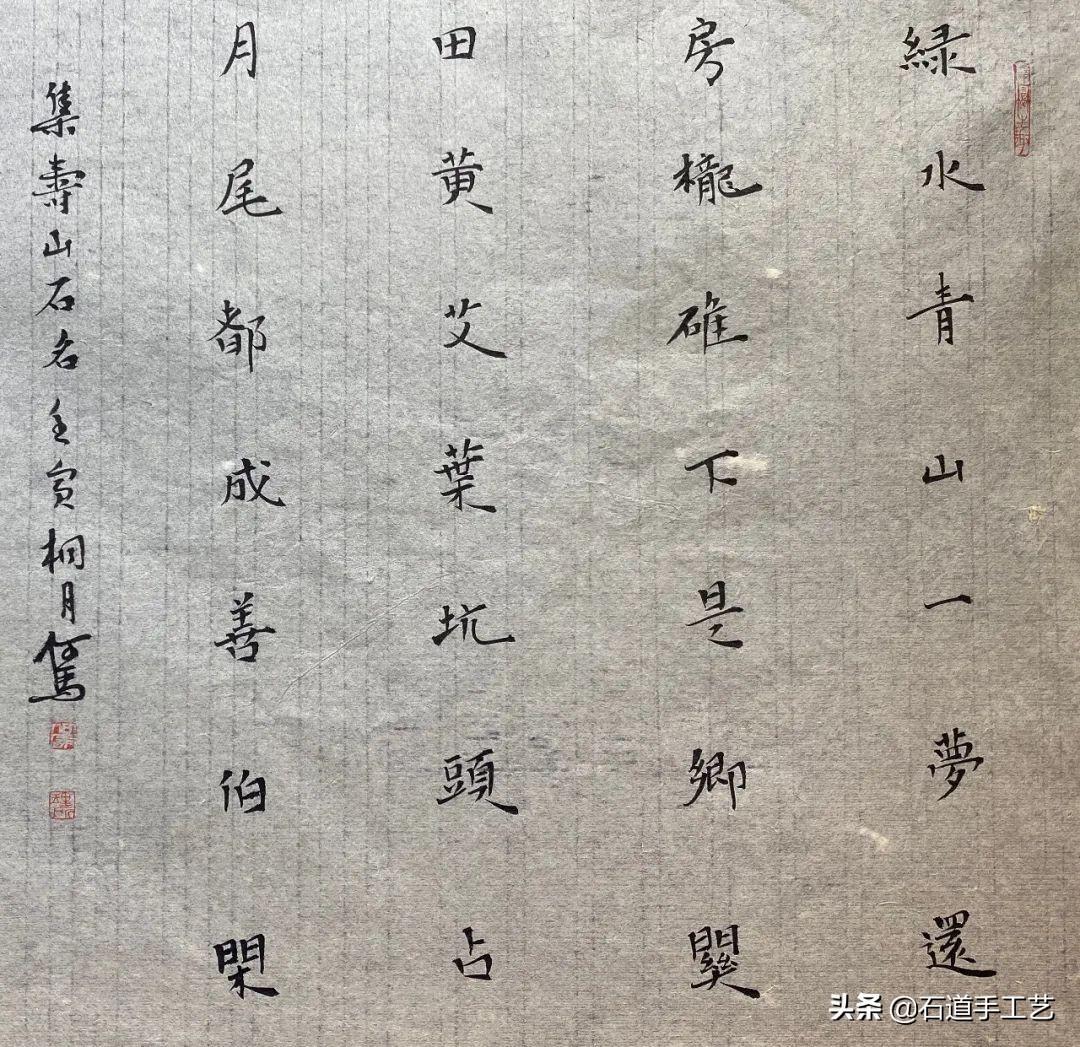 緑水青山一夢還
房櫳碓下是鄉關
田黄艾葉坑頭占
月尾都成善伯閑
集壽山石名壬寅桐月
头条 @石道手工艺